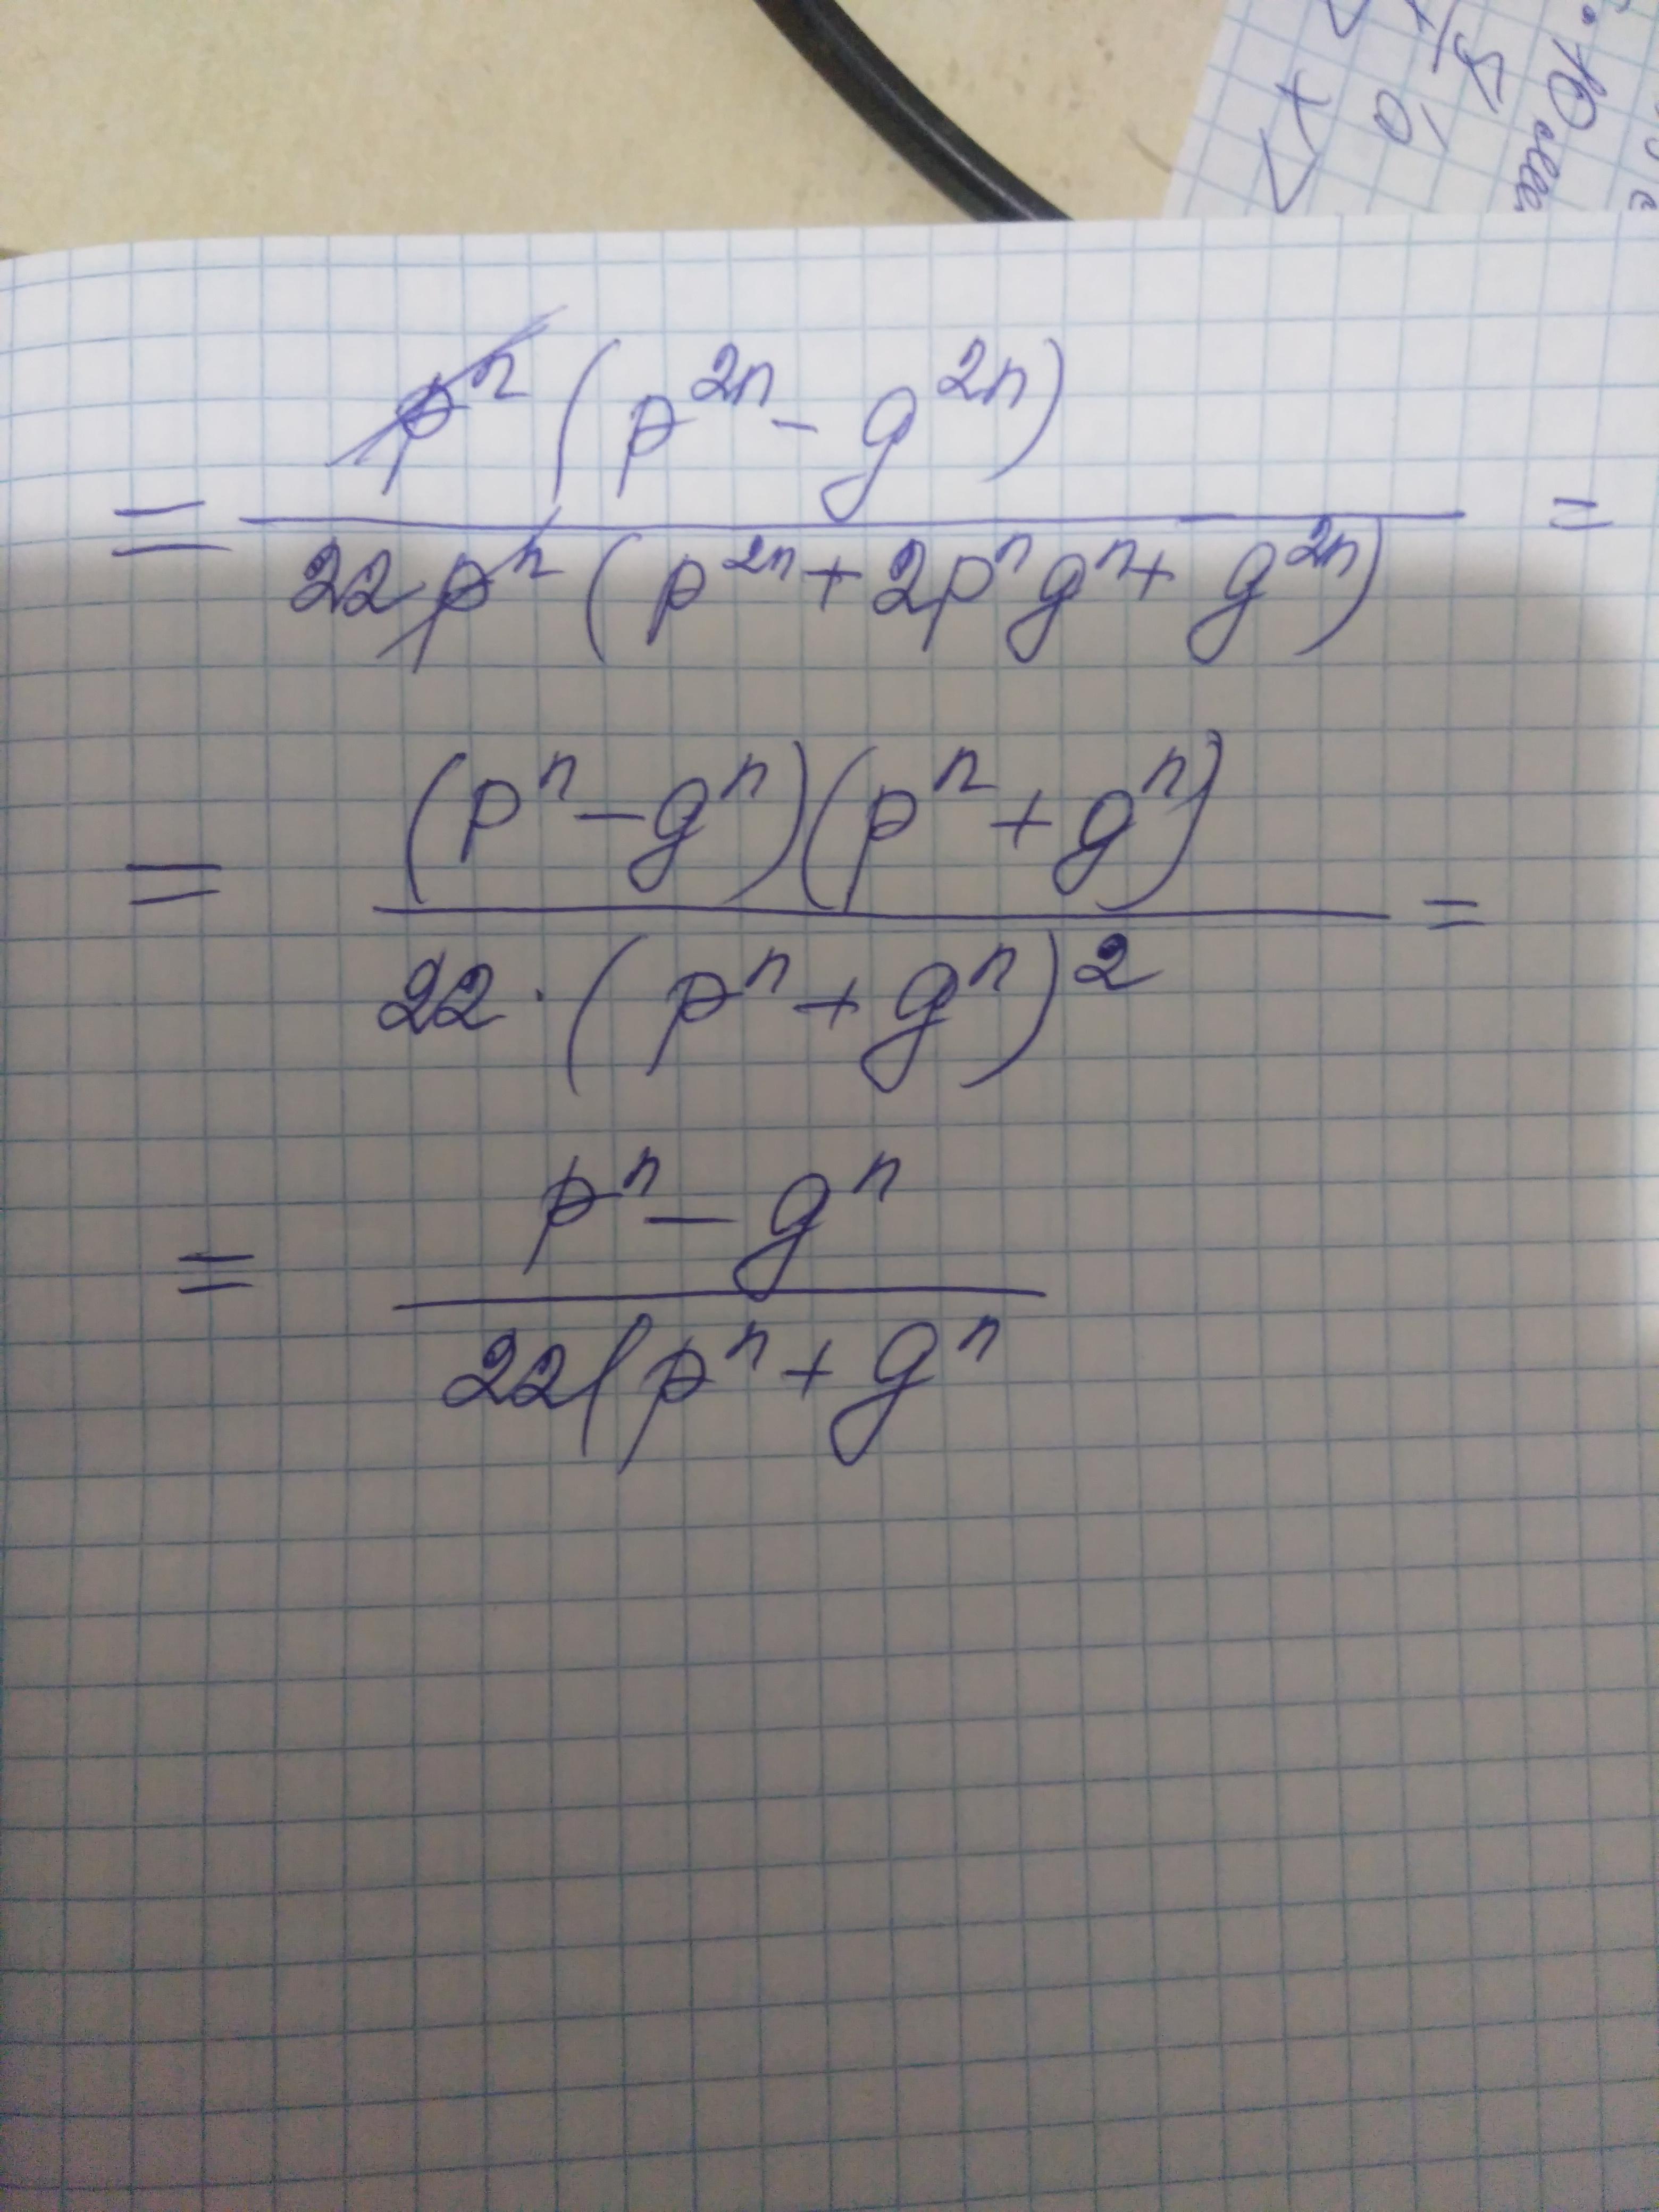 = p^n (p^{2n} - g^{2n}) / 22 p^n (p^{2n} + 2p^n g^n + g^{2n}) =
= (p^n - g^n)(p^n + g^n) / 22 · (p^n + g^n)^2 =
= p^n - g^n / 22(p^n + g^n